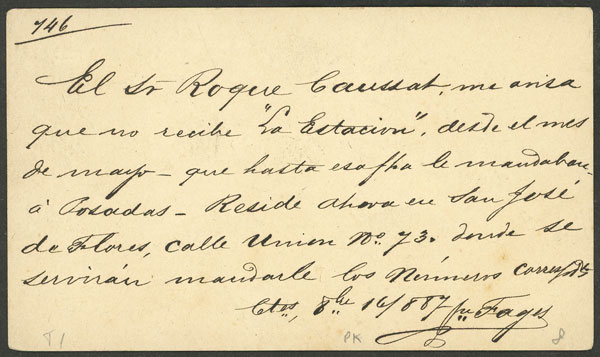 746
El Sr Roque Caussat, me avisa
que no recibe "La Estacion", desde el mes
de mayo - que hasta esa fha le mandaban
á Posadas - Reside ahora en San José
de Flores, calle Union No. 73. donde se
servirán mandarle los Números corresp.dts
Ctes, 8bre 16/887 Fages
PK
8